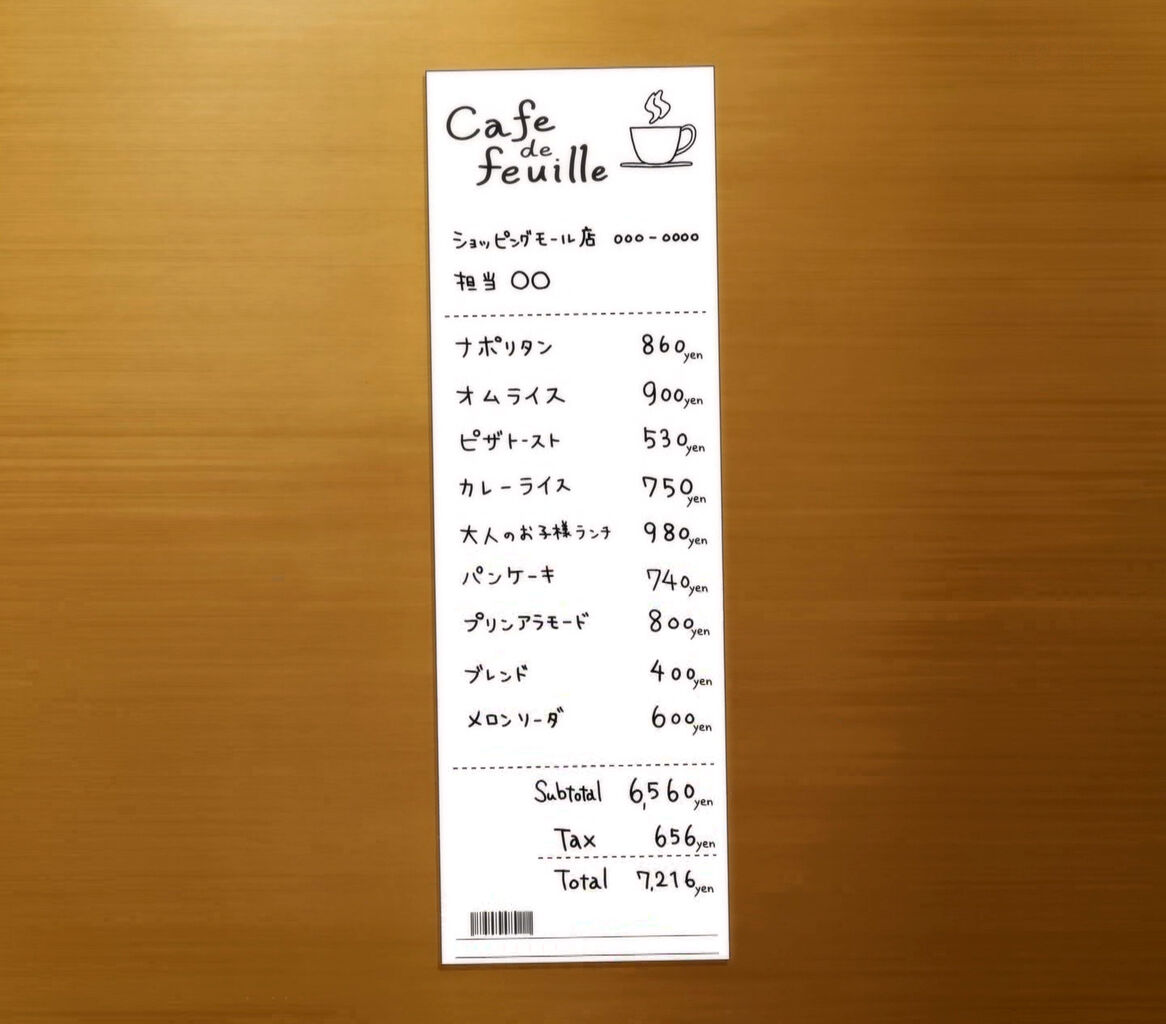 Cafe
de
feuille
ショッピングモール店 ○○○-○○○○
担当 ○○
ナポリタン 860yen
オムライス 900yen
ピザトースト 530yen
カレーライス 750yen
大人のお子様ランチ 980yen
パンケーキ 740yen
プリンアラモード 800yen
ブレンド 400yen
メロンソーダ 600yen
Subtotal 6,560yen
Tax 656yen
Total 7,216yen